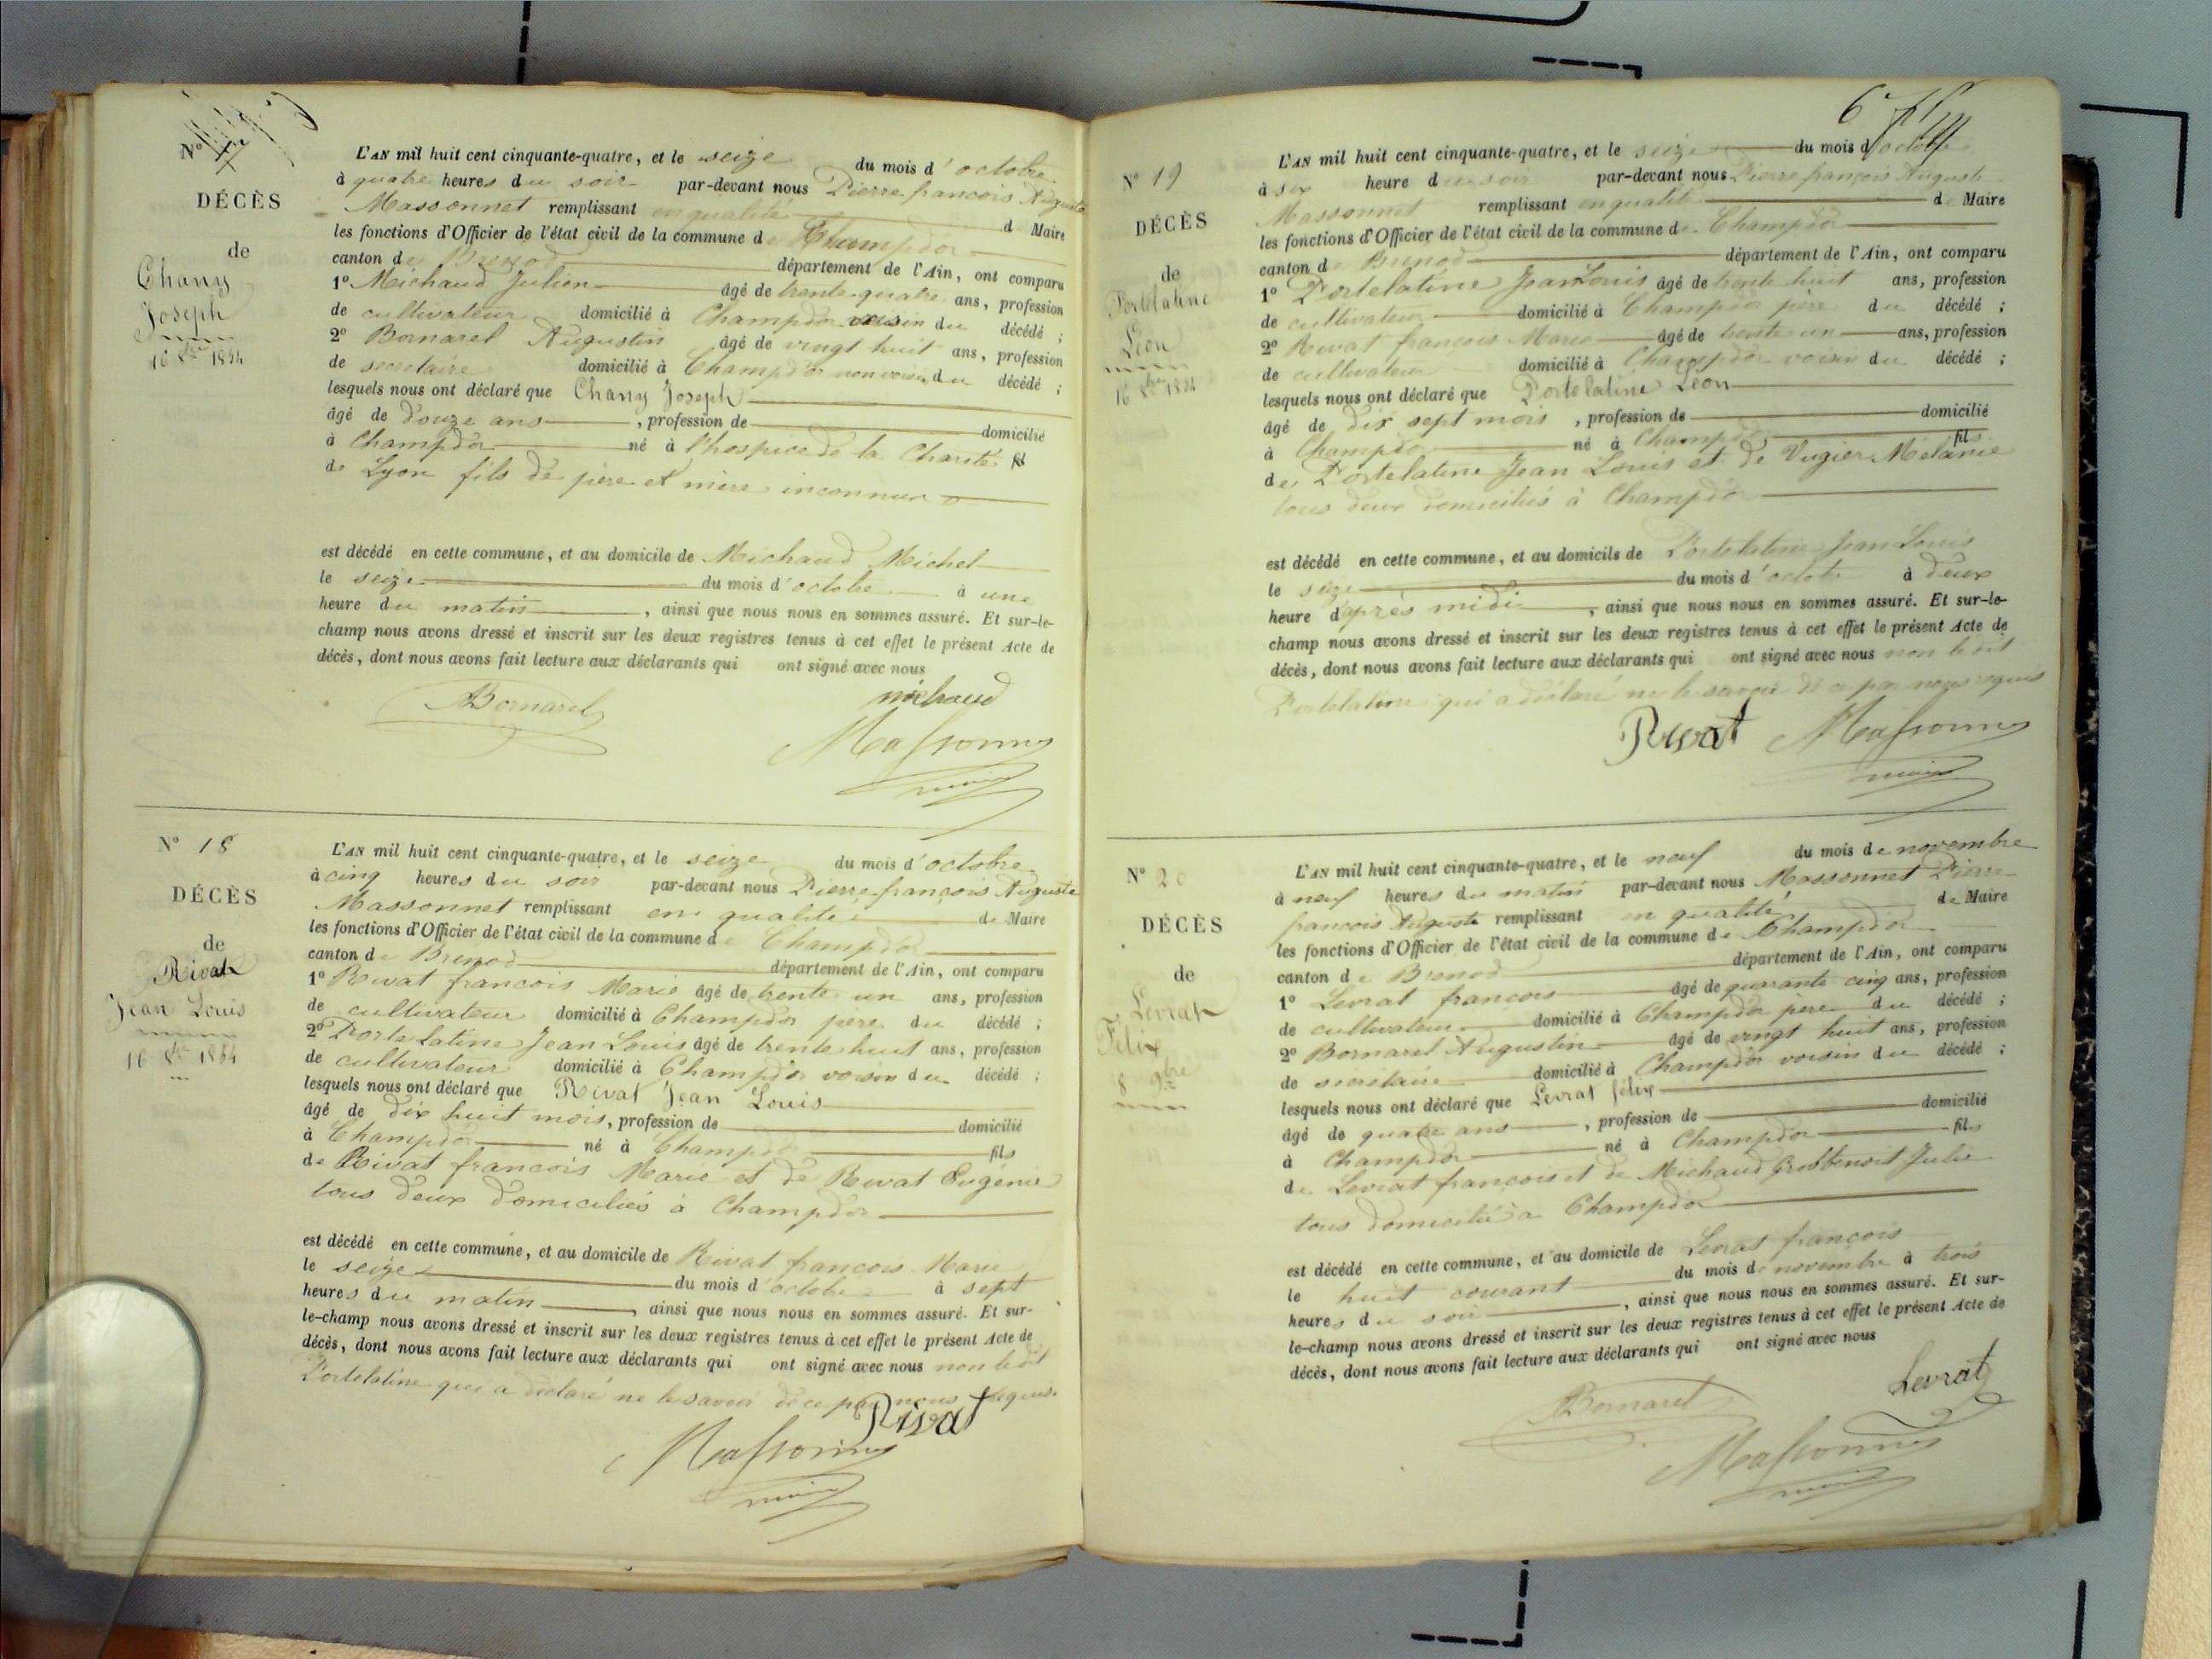 Nº 17
DÉCÈS
de
Chany
Joseph
16 8bre 1854
L'AN mil huit cent cinquante-quatre, et le seize du mois d'octobre
à quatre heures du soir par-devant nous Pierre françois Auguste
Massonnet remplissant en qualité de Maire
les fonctions d'Officier de l'état civil de la commune de Champdor
canton de Brenod département de l'Ain, ont comparu
1º Michaud Julien âgé de trente-quatre ans, profession
de cultivateur domicilié à Champdor voisin du décédé ;
2º Bornarel Augustin âgé de vingt huit ans, profession
de secrétaire domicilié à Champdor non voisin du décédé ;
lesquels nous ont déclaré que Chany Joseph
âgé de douze ans , profession de domicilié
à Champdor né à l'hospice de la Charité
de Lyon fils de père et mère inconnus
est décédé en cette commune, et au domicile de Michaud Michel
le seize du mois d'octobre à une
heure du matin , ainsi que nous nous en sommes assuré. Et sur-le-
champ nous avons dressé et inscrit sur les deux registres tenus à cet effet le présent Acte de
décès, dont nous avons fait lecture aux déclarants qui ont signé avec nous
Bornarel michaud
Massonnet
maire
Nº 18
DÉCÈS
de
Rivat
Jean Louis
16 8bre 1854
L'AN mil huit cent cinquante-quatre, et le seize du mois d'octobre
à cinq heures du soir par-devant nous Pierre françois Auguste
Massonnet remplissant en qualité de Maire
les fonctions d'Officier de l'état civil de la commune de Champdor
canton de Brenod département de l'Ain, ont comparu
1º Rivat francois Marie âgé de trente un ans, profession
de cultivateur domicilié à Champdor père du décédé ;
2º Portelatine Jean Louis âgé de trente huit ans, profession
de cultivateur domicilié à Champdor voisin du décédé ;
lesquels nous ont déclaré que Rivat Jean Louis
âgé de dix huit mois, profession de domicilié
à Champdor né à Champdor fils
de Rivat francois Marie et de Rivat Eugénie
tous deux domiciliés à Champdor
est décédé en cette commune, et au domicile de Rivat francois Marie
le seize du mois d'octobre à sept
heures du matin , ainsi que nous nous en sommes assuré. Et sur-
le-champ nous avons dressé et inscrit sur les deux registres tenus à cet effet le présent Acte de
décès, dont nous avons fait lecture aux déclarants qui ont signé avec nous non ledit
Portelatine qui a déclaré ne le savoir de ce par nous requis.
Rivat
Massonnet
maire
6
Nº 19
DÉCÈS
de
Portelatine
Léon
16 8bre 1854
L'AN mil huit cent cinquante-quatre, et le seize du mois d'octobre
à six heure du soir par-devant nous Pierre françois Auguste
Massonnet remplissant en qualité de Maire
les fonctions d'Officier de l'état civil de la commune de Champdor
canton de Brenod département de l'Ain, ont comparu
1º Portelatine Jean Louis âgé de trente huit ans, profession
de cultivateur domicilié à Champdor père du décédé ;
2º Rivat francois Marie âgé de trente un ans, profession
de cultivateur domicilié à Champdor voisin du décédé ;
lesquels nous ont déclaré que Portelatine Léon
âgé de dix sept mois , profession de domicilié
à Champdor né à Champdor fils
de Portelatine Jean Louis et de Vugier Mélanie
tous deux domiciliés à Champdor
est décédé en cette commune, et au domicile de Portelatine Jean Louis
le seize du mois d'octobre à deux
heure d'après midi , ainsi que nous nous en sommes assuré. Et sur-le-
champ nous avons dressé et inscrit sur les deux registres tenus à cet effet le présent Acte de
décès, dont nous avons fait lecture aux déclarants qui ont signé avec nous non ledit
Portelatine qui a déclaré ne le savoir de ce par nous requis
Rivat Massonnet
maire
Nº 20
DÉCÈS
de
Levrat
Félix
8 9bre
L'AN mil huit cent cinquante-quatre, et le neuf du mois de novembre
à neuf heures du matin par-devant nous Massonnet Pierre
francois Auguste remplissant en qualité de Maire
les fonctions d'Officier de l'état civil de la commune de Champdor
canton de Brenod département de l'Ain, ont comparu
1º Levrat francois âgé de quarante cinq ans, profession
de cultivateur domicilié à Champdor père du décédé ;
2º Bornarel Augustin âgé de vingt huit ans, profession
de secrétaire domicilié à Champdor voisin du décédé ;
lesquels nous ont déclaré que Levrat félix
âgé de quatre ans , profession de domicilié
à Champdor né à Champdor fils
de Levrat françois et de Michaud Grosbenoit Julie
tous domicilié à Champdor
est décédé en cette commune, et au domicile de Levrat françois
le huit courant du mois de novembre à trois
heures du soir , ainsi que nous nous en sommes assuré. Et sur-
le-champ nous avons dressé et inscrit sur les deux registres tenus à cet effet le présent Acte de
décès, dont nous avons fait lecture aux déclarants qui ont signé avec nous
Bornarel Levrat
Massonnet
maire